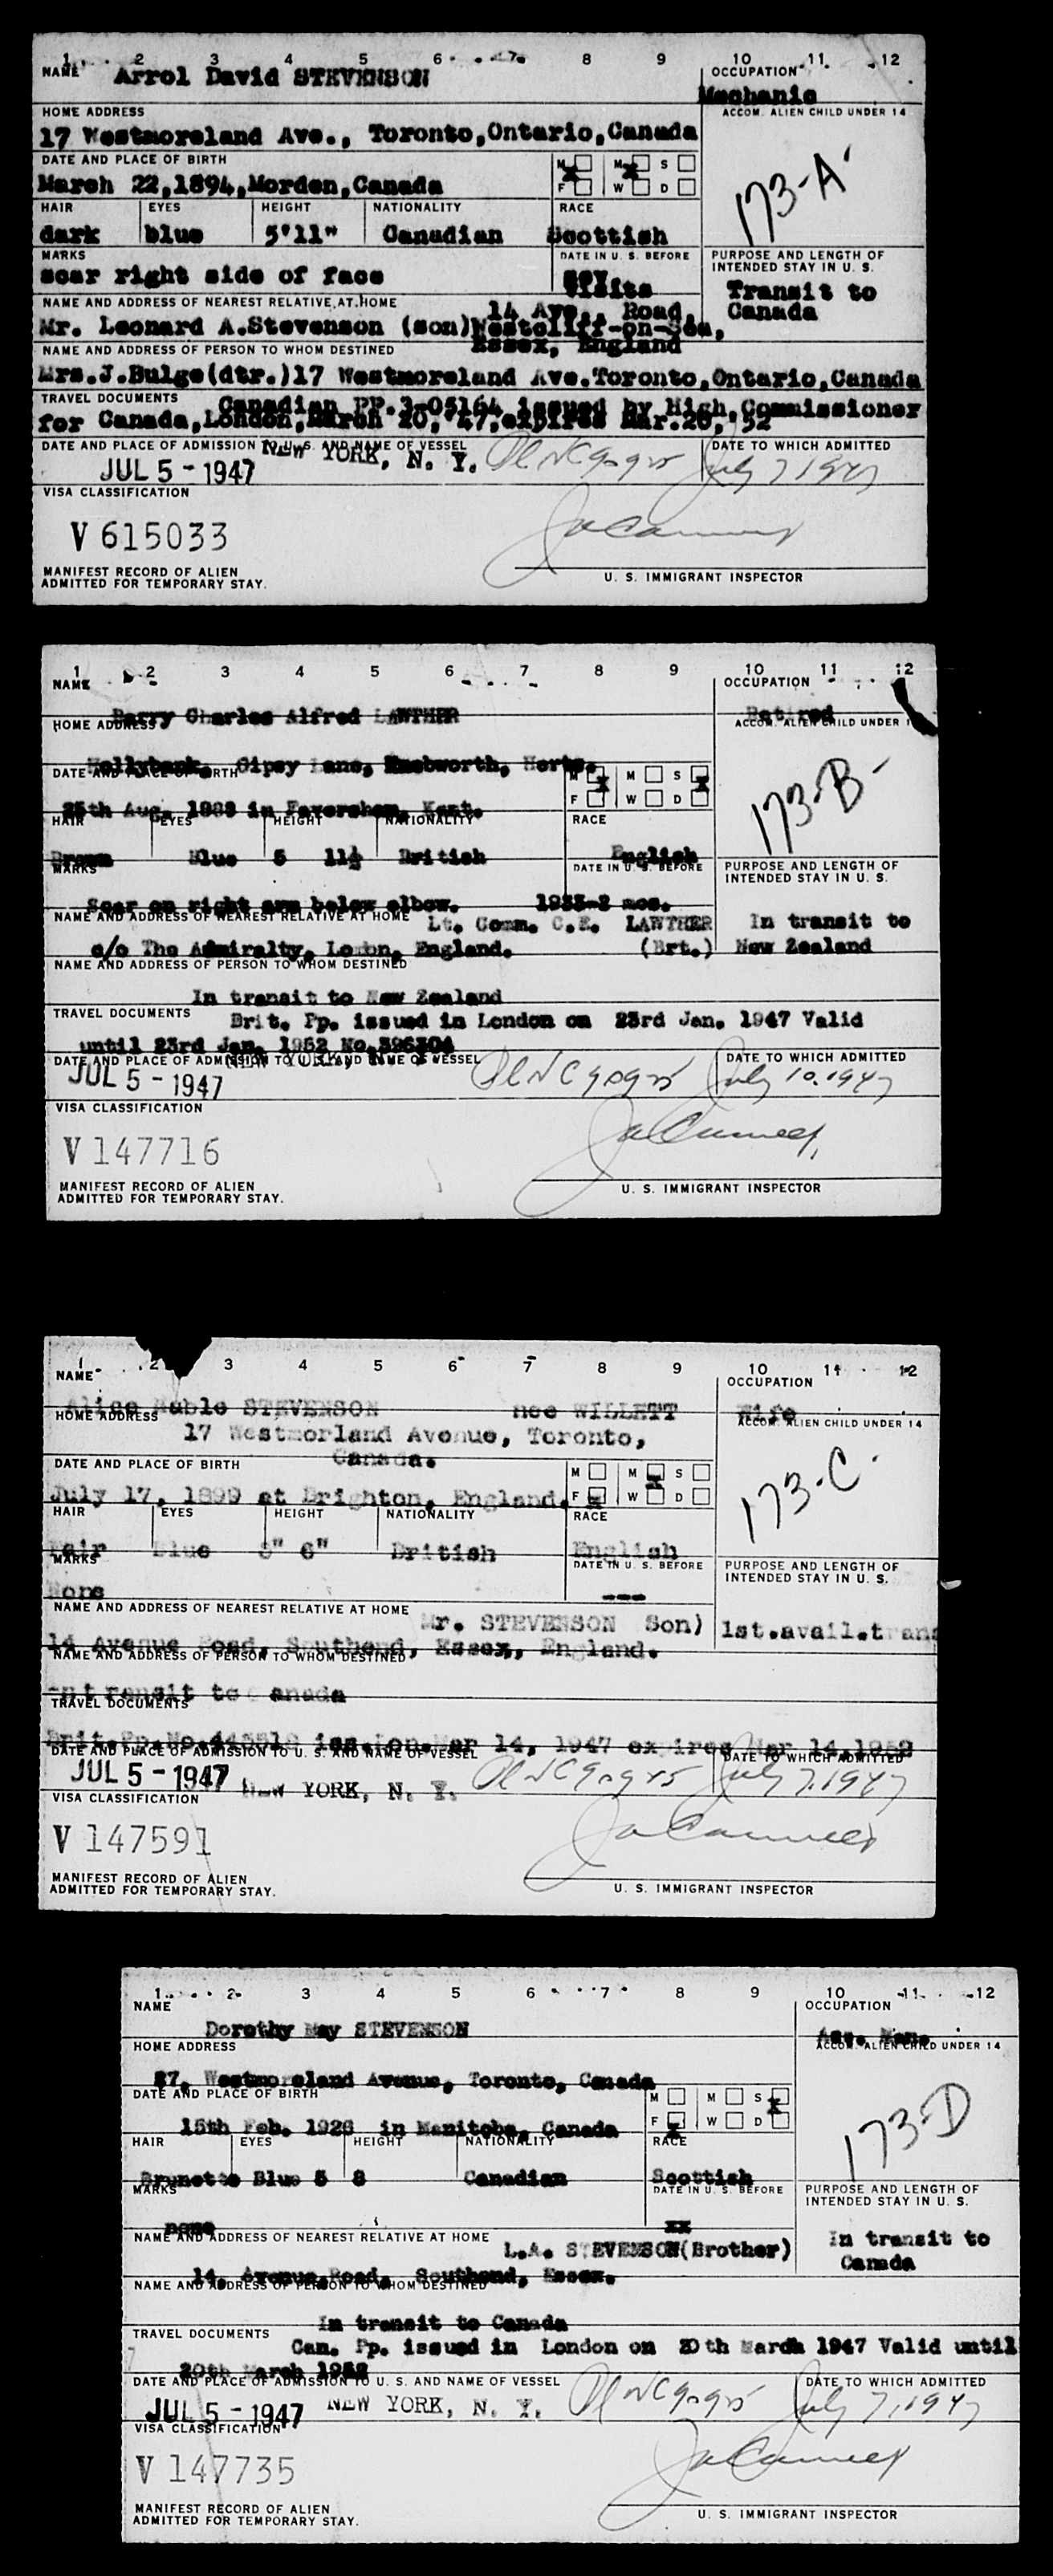 1 2 3 4 5 6 7 8 9 10 11 12
NAME Arrol David STEVENSON OCCUPATION
Mechanic
HOME ADDRESS ACCOM. ALIEN CHILD UNDER 14
17 Westmoreland Ave., Toronto,Ontario,Canada
DATE AND PLACE OF BIRTH M M S
173-A
March 22,1894,Morden,Canada F W D
HAIR EYES HEIGHT NATIONALITY RACE
dark blue 5'11" Canadian Scottish
MARKS DATE IN U. S. BEFORE PURPOSE AND LENGTH OF
INTENDED STAY IN U. S.
scar right side of face visits Transit to
NAME AND ADDRESS OF NEAREST RELATIVE AT HOME 14 Ave., Road, Canada
Mr. Leonard A.Stevenson (son)Westcliff-on-Sea,
NAME AND ADDRESS OF PERSON TO WHOM DESTINED Essex, England
Mrs.J.Bulge(dtr.)17 Westmoreland Ave.Toronto,Ontario,Canada
TRAVEL DOCUMENTS Canadian PP.3-05164 issued by High Commissioner
for Canada,London,March 20,'47,expires Mar.20,'52
DATE AND PLACE OF ADMISSION TO U. S. AND NAME OF VESSEL DATE TO WHICH ADMITTED
JUL 5 - 1947 NEW YORK, N. Y. July 7 1947
VISA CLASSIFICATION
V 615033
MANIFEST RECORD OF ALIEN
ADMITTED FOR TEMPORARY STAY. U. S. IMMIGRANT INSPECTOR
1 2 3 4 5 6 7 8 9 10 11 12
NAME OCCUPATION
Charles Alfred LAWTHER Retired
HOME ADDRESS ACCOM. ALIEN CHILD UNDER 1
Hollybank, Gipsy Lane, Knebworth, Herts.
DATE AND PLACE OF BIRTH M M S
173-B
25th Aug. 1888 in Faversham, Kent. F W D
HAIR EYES HEIGHT NATIONALITY RACE
Brown Blue 5 11½ British English
MARKS DATE IN U. S. BEFORE PURPOSE AND LENGTH OF
INTENDED STAY IN U. S.
Scar on right arm below elbow. 1933-2 mos.
NAME AND ADDRESS OF NEAREST RELATIVE AT HOME Lt. Comm. C.E. LAWTHER In transit to
c/o The Admiralty, London, England. (Brt.) New Zealand
NAME AND ADDRESS OF PERSON TO WHOM DESTINED
In transit to New Zealand
TRAVEL DOCUMENTS Brit. Pp. issued in London on 23rd Jan. 1947 Valid
until 23rd Jan. 1952 No.396304
DATE AND PLACE OF ADMISSION TO U. S. AND NAME OF VESSEL DATE TO WHICH ADMITTED
JUL 5 - 1947 NEW YORK, July 10.1947
VISA CLASSIFICATION
V 147716
MANIFEST RECORD OF ALIEN
ADMITTED FOR TEMPORARY STAY. U. S. IMMIGRANT INSPECTOR
1 2 3 4 5 6 7 8 9 10 11 12
NAME OCCUPATION
Alice Mable STEVENSON nee WILLETT Wife
HOME ADDRESS ACCOM. ALIEN CHILD UNDER 14
17 Westmorland Avenue, Toronto,
Canada.
DATE AND PLACE OF BIRTH M M S
173-C
July 17, 1899 at Brighton, England. F W D
HAIR EYES HEIGHT NATIONALITY RACE
Fair Blue 5" 6" British English
MARKS DATE IN U. S. BEFORE PURPOSE AND LENGTH OF
INTENDED STAY IN U. S.
None ---
NAME AND ADDRESS OF NEAREST RELATIVE AT HOME Mr. STEVENSON Son) 1st.avail.trans
14 Avenue Road, Southend, Essex, England.
NAME AND ADDRESS OF PERSON TO WHOM DESTINED
In transit to Canada
TRAVEL DOCUMENTS
Brit.Pp.No. iss.Lon.Mar 14, 1947 expires Mar 14,1952
DATE AND PLACE OF ADMISSION TO U. S. AND NAME OF VESSEL DATE TO WHICH ADMITTED
JUL 5 - 1947 NEW YORK, N. Y. July 7.1947
VISA CLASSIFICATION
V 147591
MANIFEST RECORD OF ALIEN
ADMITTED FOR TEMPORARY STAY. U. S. IMMIGRANT INSPECTOR
1 2 3 4 5 6 7 8 9 10 11 12
NAME OCCUPATION
Dorothy May STEVENSON
HOME ADDRESS ACCOM. ALIEN CHILD UNDER 14
Westmoreland Avenue, Toronto, Canada
DATE AND PLACE OF BIRTH M M S
173-D
15th Feb. 1926 in Manitoba, Canada F W D
HAIR EYES HEIGHT NATIONALITY RACE
Brunette Blue 5 8 Canadian Scottish
MARKS DATE IN U. S. BEFORE PURPOSE AND LENGTH OF
INTENDED STAY IN U. S.
none xx
NAME AND ADDRESS OF NEAREST RELATIVE AT HOME L.A. STEVENSON(Brother) In transit to
Canada
14, Avenue,Road, Southend, Essex.
NAME AND ADDRESS OF PERSON TO WHOM DESTINED
In transit to Canada
TRAVEL DOCUMENTS Can. Pp. issued in London on 20th March 1947 Valid until
20th March 1952
DATE AND PLACE OF ADMISSION TO U. S. AND NAME OF VESSEL DATE TO WHICH ADMITTED
JUL 5 - 1947 NEW YORK, N. Y. July 7,1947
VISA CLASSIFICATION
V 147735
MANIFEST RECORD OF ALIEN
ADMITTED FOR TEMPORARY STAY. U. S. IMMIGRANT INSPECTOR